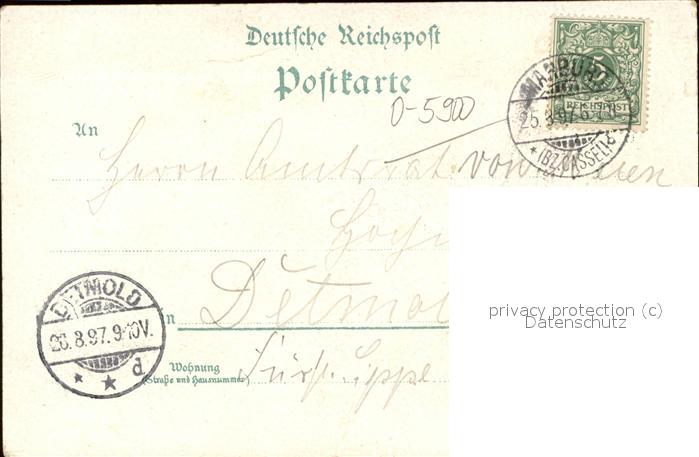 Deutsche Reichspost
Postkarte
5
REICHSPOST
MARBURG
25.8.97.6
* (BZ. CASSEL)
0-5900
An
Herrn Amtsrat von
Hoch
Detmol
in
DETMOLD
26.8.97.9-10V.
Wohnung
(Straße und Hausnummer)
Fürst. Lippe
privacy protection (c)
Datenschutz